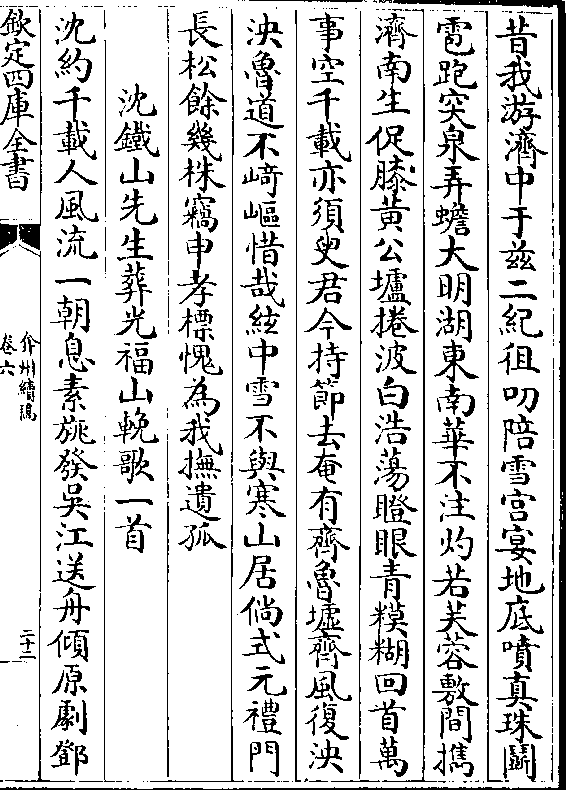 昔我游濟中于兹二紀徂叨陪雪宫宴地底噴真珠鬬
雹跑突泉弄蟾大明湖東南華不注灼若芙蓉敷間攜
濟南生促膝黄公壚捲波白浩蕩瞪眼青糢糊回首萬
事空千載亦須臾君今持節去奄有齊魯墟齊風復泱
泱魯道不﨑嶇惜哉絃中雪不與寒山居倘式元禮門
長松餘幾株竊申孝標愧為我撫遺孤
沈鐵山先生葬光福山輓歌一首
沈約千載人風流一朝息素旐發吳江送舟傾原劇鄧
欽定四庫全書
弇州續稿
卷六
二十二